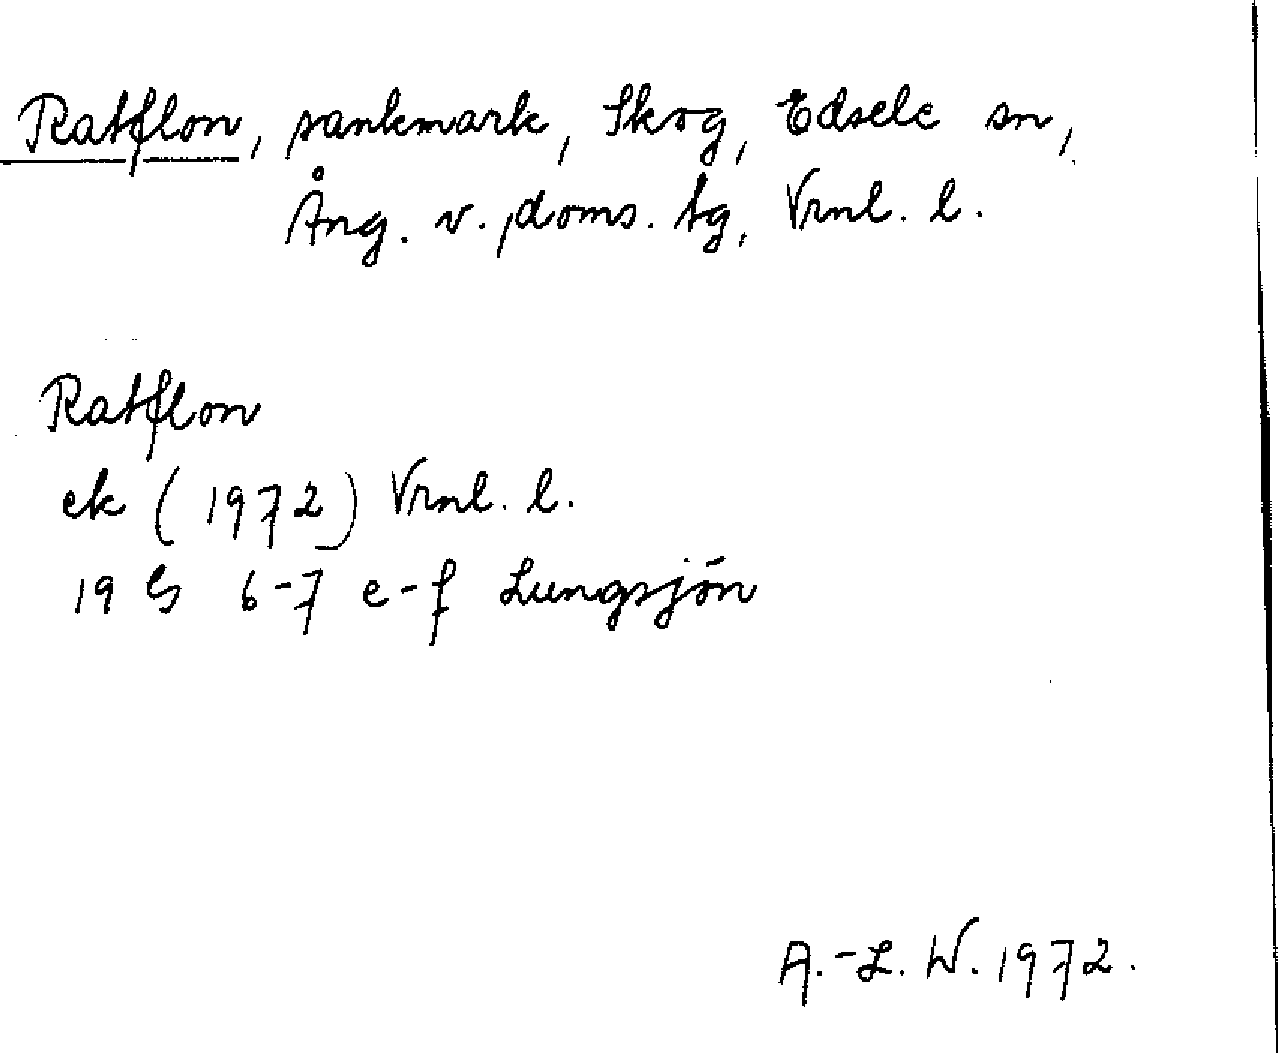 Ratflon, sankmark, Skog, Edsele sn,
Ång. v. doms. tg, Vrnl. l.
Ratflon
ek (1972) Vrnl. l.
19 G 6-7 e-f Lungsjön
A.-L. W. 1972.